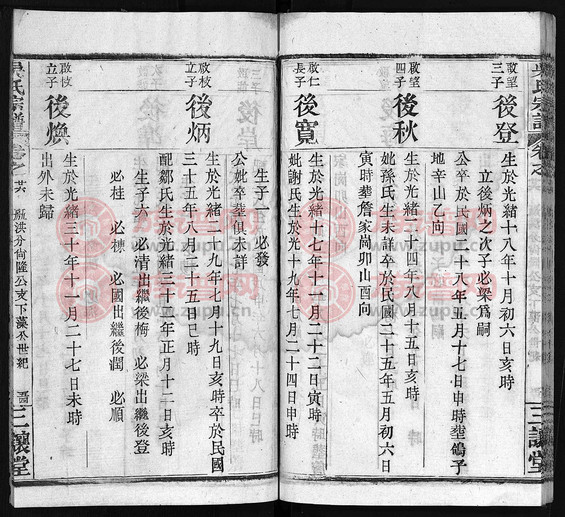 啟望三子 後登
生於光緒十八年十月初六日亥時
立後炳之次子必梁爲嗣
公卒於民國二十八年五月十七日申時塟鴿子
地辛山乙向
啟望四子 後秋
生於光緒二十四年八月十五日亥時
妣孫氏生未詳卒於民國二十五年五月初六日
寅時塟詹家崗卯山酉向
啟仁長子 後寬
生於光緒十七年十一月二十二日寅時
妣謝氏生於光緒十九年七月二十四日申時
生子一 必發
公妣卒塟俱未詳
啟枝立子 後炳
生於光緒二十九年七月十九日亥時卒於民國
三十五年八月二十五日巳時
配鄒氏生於光緒三十年正月十二日亥時
生子六 必清出繼後梅 必梁出繼後登
必桂 必棟 必國出繼後潤 必順
啟枝立子 後煥
生於光緒三十年十一月二十七日未時
出外未歸
吳氏宗譜
卷之
三讓堂
族譜网
www.zupu.cn